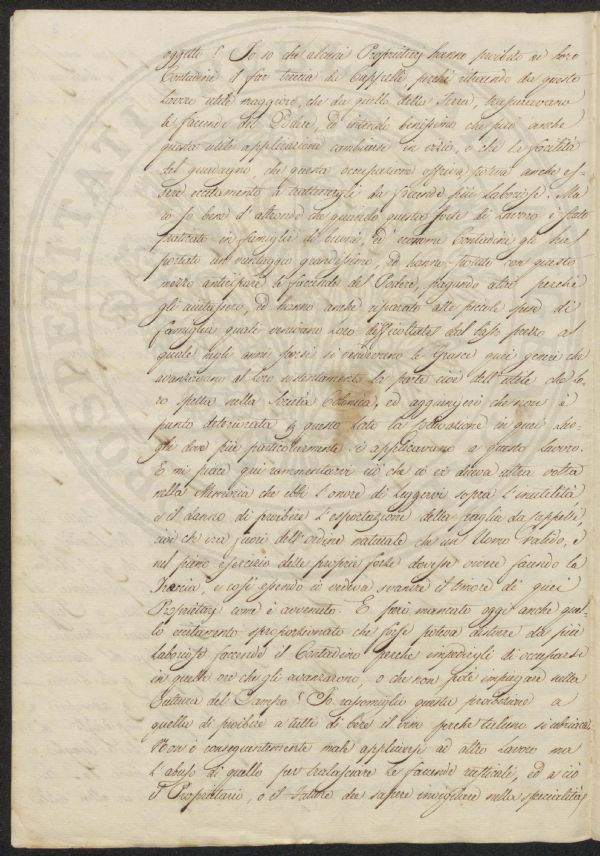 oggetto? Io so che alcuni Proprietarj hanno proibito ai loro
Contadini il far treccia da Cappelli perchè ritraendo da questo
lavoro utile maggiore, che da quello della Terra, trascuravano
le faccende del Podere, ed intendo benissimo che può anche
questa utile applicazione cambiarsi in vizio, e che la facilità
del guadagno, che questa occupazione offriva poteva anche es-
sere eccitamento a trattenergli da faccende più laboriose. Ma
io so bene d'altronde che quando questa sorte di lavoro è stato
praticato in famiglie di onesti, ed economi Contadini gli ha
portato un vantaggio grandissimo, ed hanno potuto con questo
mezzo anticipare le faccende del Podere, pagando altri perchè
gli aiutassero, ed hanno anche riparato alle piccole spese di
famiglia quale venivano loro difficoltate dal basso prezzo al
quale negli anni scorsi si vendevano le Grasce quei generi che
avanzavano al loro sostentamento la parte cioè dell'utile che lo-
ro spetta nella Società Colonica, ed aggiungerò che non è
punto deteriorata per questo lato la coltivazione in quei luo-
ghi dove più particolarmente si applicavano a questo lavoro.
E mi piace qui rammentarvi ciò che io vi diceva altra volta
nella Memoria che ebbi l'onore di leggervi sopra l'inutilità
e il danno di proibire l'esportazione della paglia da cappelli,
cioè che era fuori dell'ordine naturale che un Uomo valido, e
nel pieno esercizio delle proprie forze dovesse vivere facendo la
Treccia, e così essendo io vedeva svanire il timore di quei
Proprietarj come è avvenuto. E però mancato oggi anche quel-
lo eccitamento sproporzionato che forse poteva distorre da più
laboriose faccende il Contadino perchè impedirgli di occuparsi
in quelle ore che gli avanzavano, o che non può impiegare nella
Cultura del Campo? Io rassomiglio questa proibizione a
quella di proibire a tutti di bere il vino perchè taluno si ubriaca.
Non è conseguentemente male applicarsi ad altro lavoro ma
l'abuso di quello per tralasciare le faccende rusticali, ed a ciò
il Proprietario, o il Fattore dee sapere invigilare nella specialità,